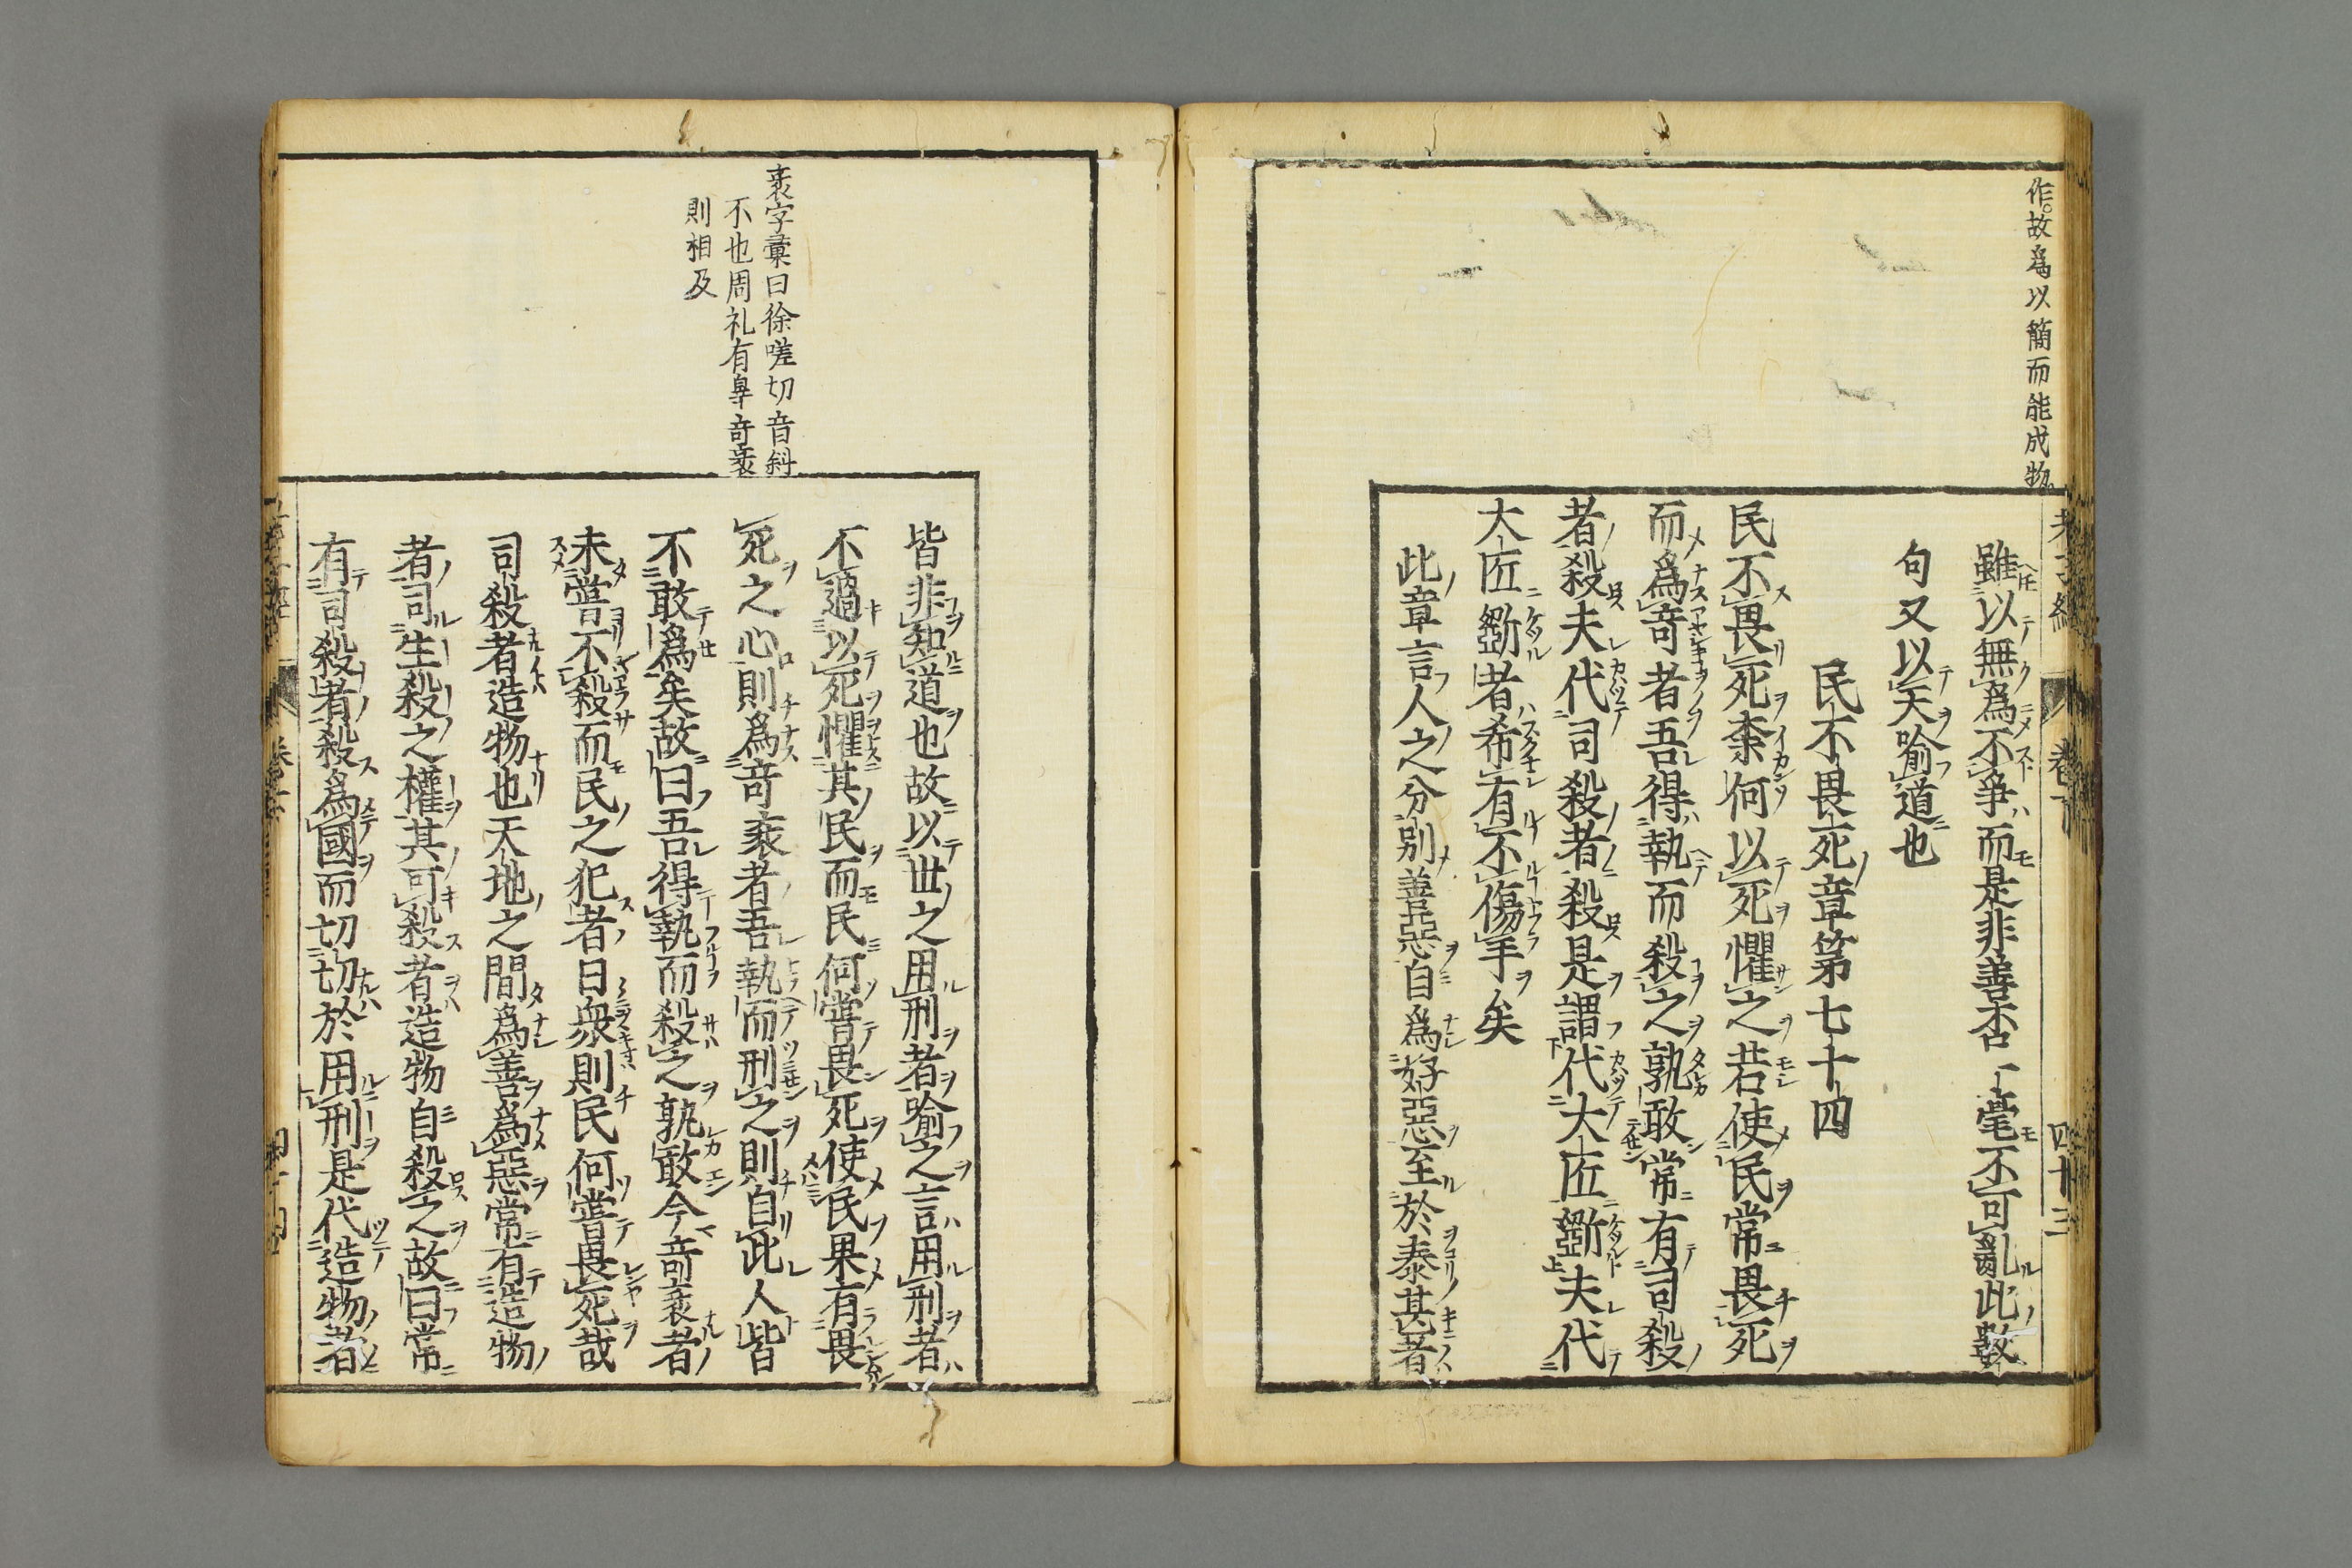 作故爲以簡而能成物
雖以無爲不爭而是非善否一毫不可亂此數
句又以天喻道也
民不畏死章第七十四
民不畏死柰何以死懼之若使民常畏死
而爲竒者吾得執而殺之孰敢常有司殺
者殺夫代司殺者殺是謂代大匠斲夫代
大匠斲者希有不傷手矣
此章言人之分別善惡自爲好惡至於泰甚者
四十三
衺字彙曰徐嗟切音斜
不也周礼有辠竒衺
則相及
皆非知道也故以世之用刑者喻之言用刑者
不過以死懼其民而民何嘗畏死使民果有畏
死之心則爲竒衺者吾執而刑之則自此人皆
不敢爲矣故曰吾得執而殺之孰敢今竒衺者
未嘗不殺而民之犯者日衆則民何嘗畏死哉
司殺者造物也天地之間爲善爲惡常有造物
者司生殺之權其可殺者造物自殺之故曰常
有司殺者殺爲國而切切於用刑是代造物者